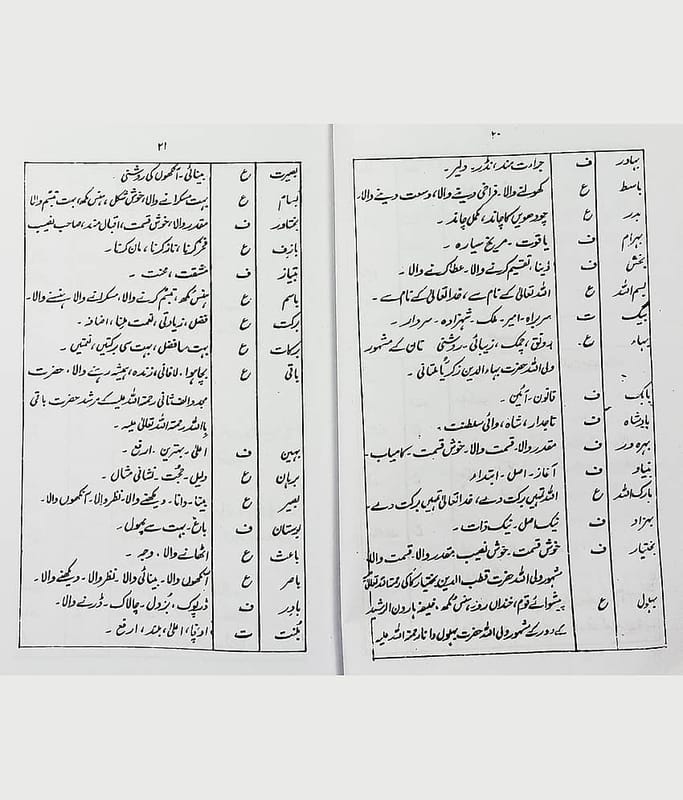 ۲۰
بہادر ف جرات مند، نڈر۔ دلیر۔
باسط ع کھولنے والا، فراخی دینے والا، وسعت دینے والا۔
بدر ع چودھویں کا چاند، مکمل چاند۔
بہرام ف یاقوت۔ مریخ سیارہ۔
بخش ف دینا، تقسیم کرنے والا۔ عطا کرنے والا۔
بسم اللہ ع اللہ تعالیٰ کے نام سے، خدا تعالیٰ کے نام سے۔
بیگ ت سربراہ۔ امیر۔ ملک۔ شہزادہ۔ سردار۔
بہاء ع۔ رونق، چمک، زیبائی۔ روشنی کے مشہور
ولی اللہ حضرت بہاء الدین زکریا ملتانی۔
بابک ف قانون۔ آئین۔
بادشاہ ف تاجدار، شاہ، والی سلطنت۔
بہرہ ور ف مقدر والا۔ قسمت والا۔ خوش قسمت۔ کامیاب۔
بنیاد ف آغاز۔ اصل۔ ابتداء۔
بارک اللہ ع اللہ تمہیں برکت دے، خدا تعالیٰ تمہیں برکت دے۔
بہزاد ف نیک اصل۔ نیک ذات۔
بختیار ف خوش قسمت۔ خوش نصیب۔ مقدر والا۔ قسمت والا۔
مشہور ولی اللہ حضرت قطب الدین بختیار کاکی رحمتہ اللہ تعالیٰ
بہلول ع پیشوائے قوم، خنداں رو، ہنس مکھ، خلیفہ ہارون الرشید
کے دور کے مشہور ولی اللہ حضرت بہلول دانا رحمتہ اللہ علیہ
۲۱
بصیرت ع بینائی۔ آنکھوں کی روشنی
بسام ع بہت مسکرانے والا، خوش شکل، ہنس مکھ، بہت تبسم والا
بختاور ف مقدر والا، خوش قسمت، اقبال مند، صاحب نصیب
بازف ع فخر کرنا، ناز کرنا، مان کرنا۔
ف مشقت، محنت۔
باسم ع ہنس مکھ، تبسم کرنے والا، مسکرانے والا، ہنسنے والا۔
برکت ع فضل، زیادتی، نعمت ملنا، اضافہ۔
برکات ع بہت سا فضل، بہت سی برکتیں، نعمتیں۔
باقی ع بچا ہوا۔ لافانی، زندہ، ہمیشہ رہنے والا، حضرت
مجدد الف ثانی رحمتہ اللہ علیہ کے مرشد حضرت باقی
باللہ رحمتہ اللہ تعالیٰ علیہ۔
بہین ف اعلیٰ۔ بہترین۔ ارفع۔
برہان ع دلیل۔ حجت۔ نشانی مثال۔
بصیر ع بینا۔ دانا۔ دیکھنے والا۔ نظر والا۔ آنکھوں والا۔
بوستان ف باغ۔ بہت سے پھول۔
باعث ع اٹھانے والا۔ وجہ۔
باصر ع آنکھوں والا۔ بینائی والا۔ نظر والا۔ دیکھنے والا۔
ف ڈرپوک، بزدل۔ چالاک۔ ڈرنے والا۔
ت اونچا، اعلیٰ، بلند، ارفع۔